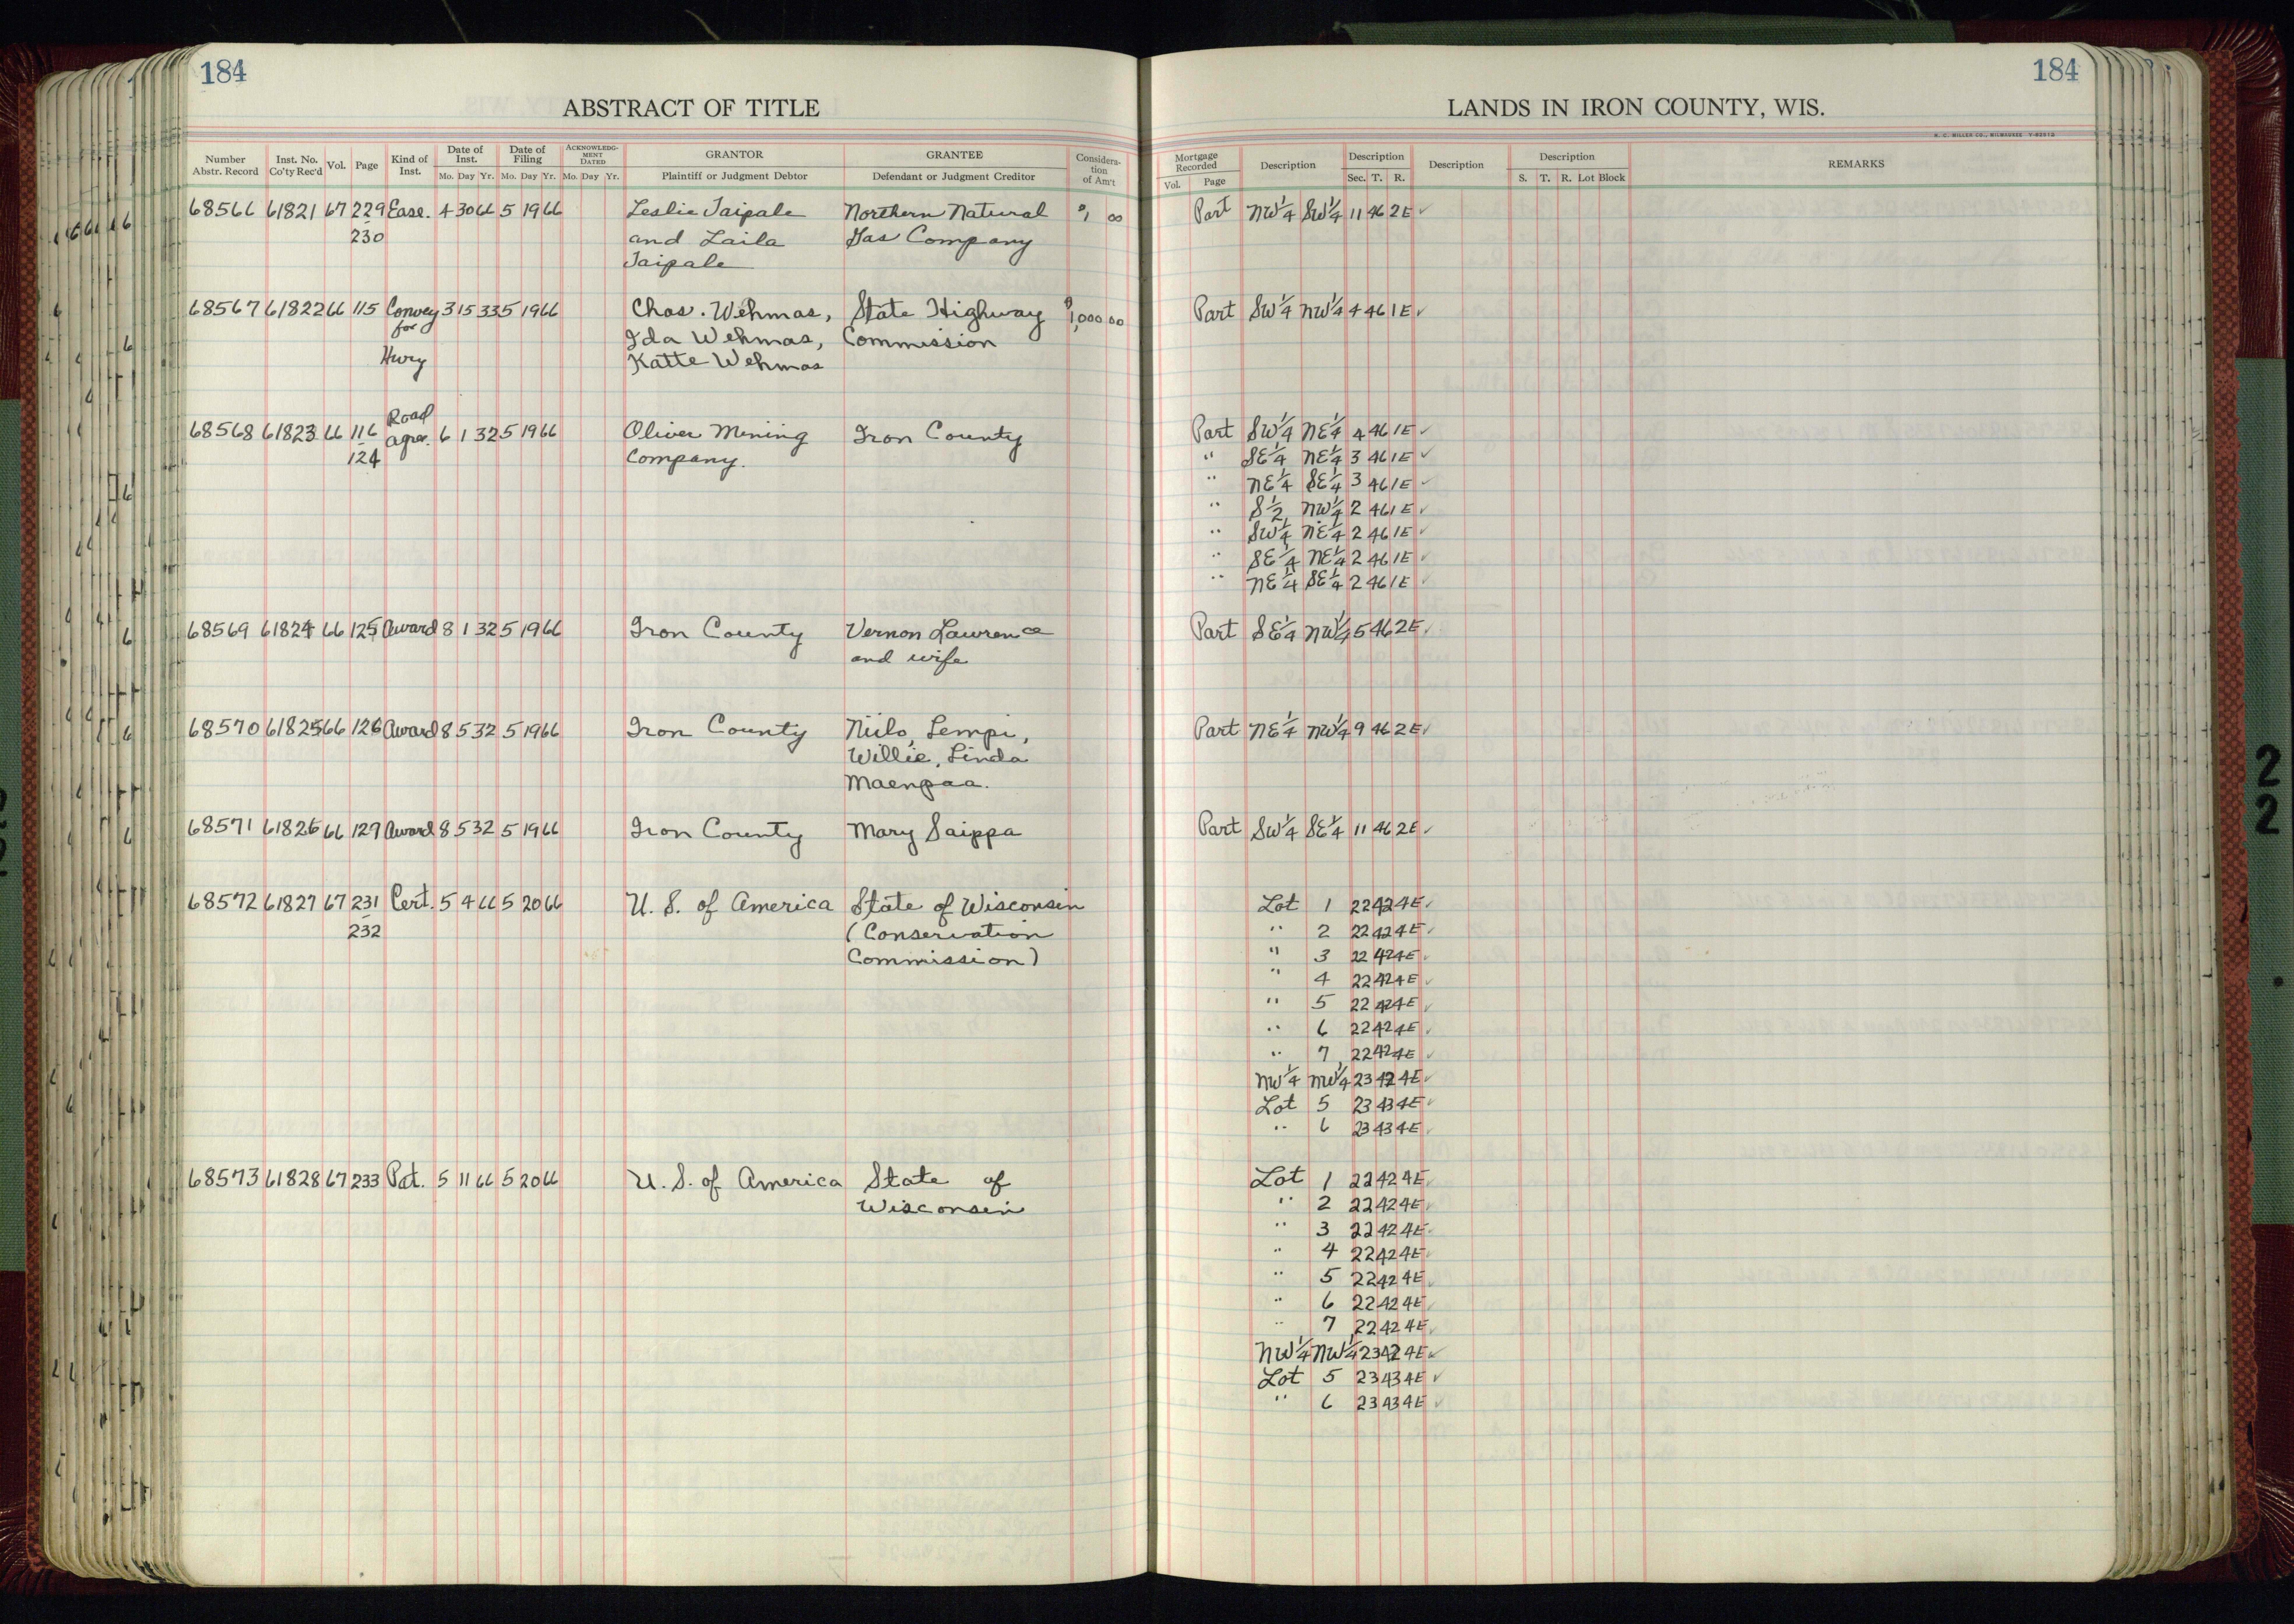 184
184
ABSTRACT OF TITLE
LANDS IN IRON COUNTY, WIS.
H. C. MILLER CO., MILWAUKEE
Number Abstr. Record
Inst. No. Co'ty Rec'd
Vol.
Page
Kind of Inst.
Date of Inst.
Mo. Day Yr.
Date of Filing
Mo. Day Yr.
ACKNOWLEDGMENT DATED
Mo. Day Yr.
GRANTOR
Plaintiff or Judgment Debtor
GRANTEE
Defendant or Judgment Creditor
Consideration of Am't
Mortgage Recorded
Vol. Page
Description
Description
Sec. T. R.
Description
Description
S. T. R. Lot Block
REMARKS
68566 61821 67 229 Ease. 4 30 66 5 19 66 Leslie Taipale Northern Natural $1 00 Part NW 1/4 SW 1/4 11 46 2E ✓
230 and Laila Gas Company
Taipale
68567 61822 66 115 Convey 3 15 33 5 19 66 Chas. Wehmas, State Highway $1,000 00 Part SW 1/4 NW 1/4 4 46 1E ✓
for Ida Wehmas, Commission
Hwy Katte Wehmas
Road
68568 61823 66 116 agree. 6 1 32 5 19 66 Oliver Mining Iron County Part SW 1/4 NE 1/4 4 46 1E ✓
124 Company. " SE 1/4 NE 1/4 3 46 1E ✓
" NE 1/4 SE 1/4 3 46 1E ✓
" S 1/2 NW 1/4 2 46 1E ✓
" SW 1/4 NE 1/4 2 46 1E ✓
" SE 1/4 NE 1/4 2 46 1E ✓
" NE 1/4 SE 1/4 2 46 1E ✓
68569 61824 66 125 Award 8 1 32 5 19 66 Iron County Vernon Lawrence Part SE 1/4 NW 1/4 5 46 2E ✓
and wife
68570 61825 66 126 Award 8 5 32 5 19 66 Iron County Niilo, Lempi, Part NE 1/4 NW 1/4 9 46 2E ✓
Willie, Linda
Maenpaa.
68571 61826 66 129 Award 8 5 32 5 19 66 Iron County Mary Saippa Part SW 1/4 SE 1/4 11 46 2E ✓
68572 61827 67 231 Cert. 5 4 66 5 20 66 U. S. of America State of Wisconsin Lot 1 22 42 4E ✓
232 (Conservation " 2 22 42 4E ✓
Commission) " 3 22 42 4E ✓
" 4 22 42 4E ✓
" 5 22 42 4E ✓
" 6 22 42 4E ✓
" 7 22 42 4E ✓
NW 1/4 NW 1/4 23 42 4E ✓
Lot 5 23 43 4E ✓
" 6 23 43 4E ✓
68573 61828 67 233 Pat. 5 11 66 5 20 66 U. S. of America State of Lot 1 22 42 4E ✓
Wisconsin " 2 22 42 4E ✓
" 3 22 42 4E ✓
" 4 22 42 4E ✓
" 5 22 42 4E ✓
" 6 22 42 4E ✓
" 7 22 42 4E ✓
NW 1/4 NW 1/4 23 42 4E ✓
Lot 5 23 43 4E ✓
" 6 23 43 4E ✓